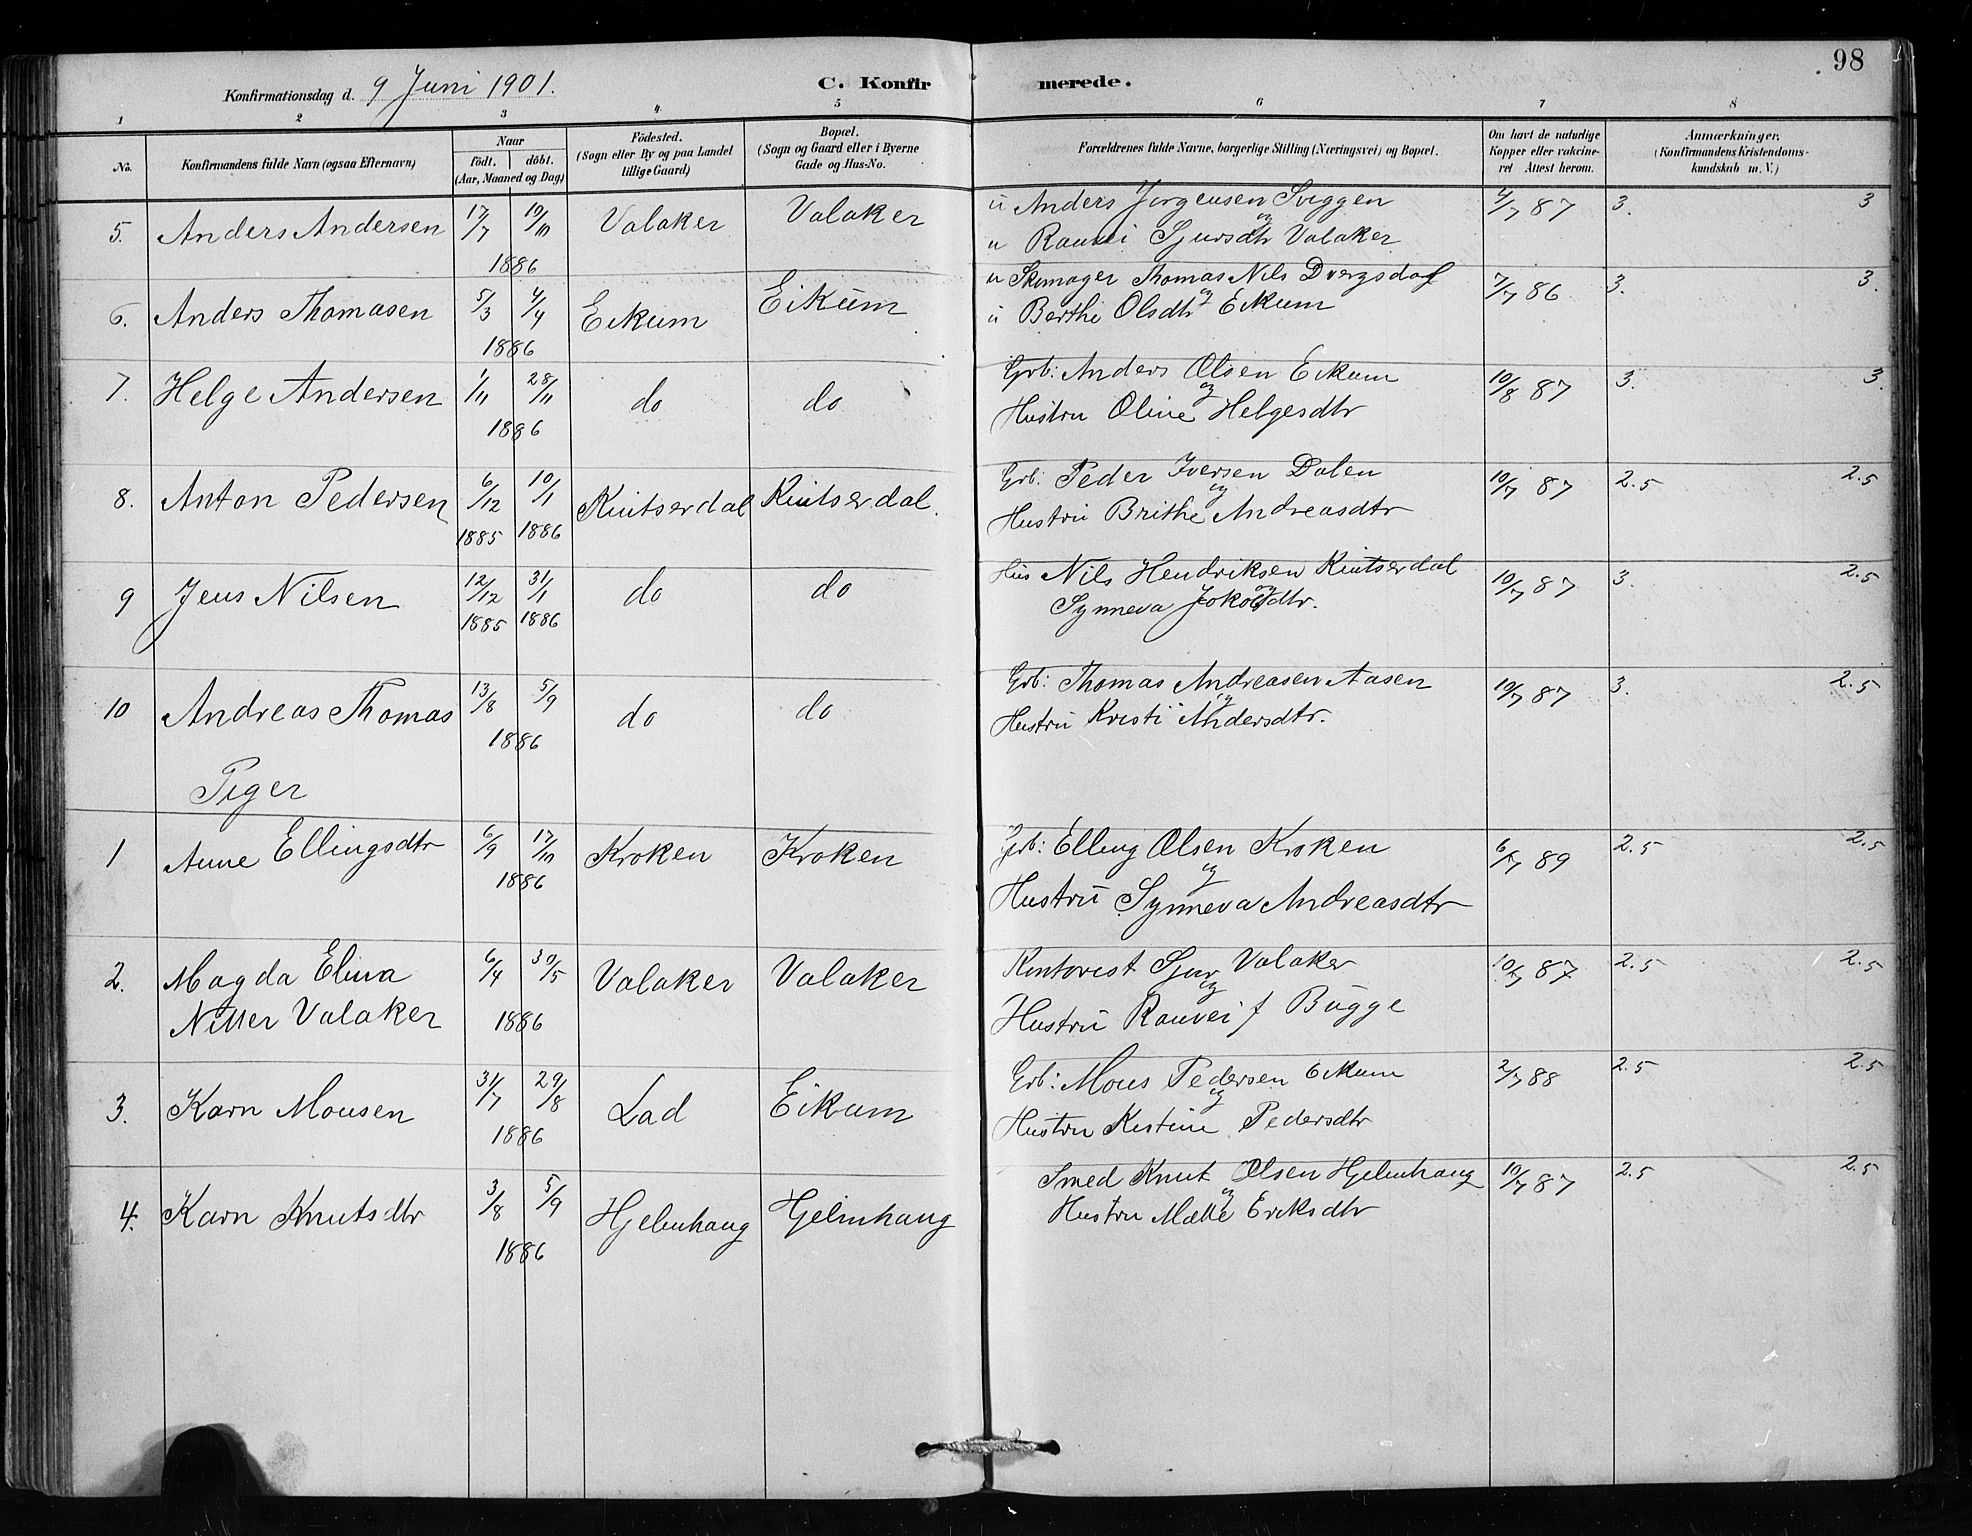 98
Konfirmationsdag d. 9 Juni 1901.
C. Konfirmerede.
1 2 3 4 5 6 7 8
No.
Konfirmandens fulde Navn (ogsaa Efternavn)
Naar
födt. döbt.
(Aar, Maaned og Dag)
Födested.
(Sogn eller By og paa Landet
tillige Gaard)
Bopæl.
(Sogn og Gaard eller i Byerne
Gade og Hus-No.
Forældrenes fulde Navne, borgerlige Stilling (Næringsvei) og Bopæl.
Om havt de naturlige
Kopper eller vakcine-
ret Attest herom.
Anmærkninger.
(Konfirmandens Kristendoms-
kundskab m. V.)
5. Anders Andersen 17/7 10/10 1886 Valaker Valaker
u Anders Jørgensen Sviggen og
u Rauvei Sjursdtr Valaker
4/7 87 3. 3
6. Anders Thomasen 5/3 4/4 1886 Eikum Eikum
u Skomager Thomas Nils Dvergsdal og
u Berthe Olsdtr Eikum
7/7 86 3. 3.
7. Helge Andersen 1/11 28/11 1886 do do
Grb: Anders Olsen Eikum og
Hustru Oline Helgesdtr
10/8 87 3. 3.
8. Anton Pedersen 6/12 1885 10/1 1886 Kintserdal Kintserdal.
Grb: Peder Iversen Dalen og
Hustru Brithe Andreasdtr
10/7 87 2.5 2.5
9 Jens Nilsen 12/12 1885 31/1 1886 do do
Hus Nils Hendriksen Kintserdal og
Synneva Jokobdtr.
10/7 87 3. 2.5
10 Andreas Thomas 13/8 5/9 1886 do do
Grb: Thomas Andreasen Aasen og
Hustru Kristi Andersdtr.
10/7 87 3. 2.5
Piger
1 Anne Ellingsdtr 6/9 17/10 1886 Kroken Kroken
Grb: Elling Olsen Kroken og
Hustru Synneva Andreasdtr
6/7 89 2.5 2.5
2. Magda Elina
Nitter Valaker 6/4 30/5 1886 Valaker Valaker
Sjur Valaker og
Hustru Rauvei f Bugge
87 2.5 2.5
3. Karn Monsen 31/7 29/8 1886 Lad Eikum
Grb: Mons Pedersen Eikum og
Hustru Kristine Pedersdtr
2/7 88 2.5 2.5
4. Karn Knutsdtr 3/8 5/9 1886 Hjelmhaug Hjelmhaug
Smed Knut Olsen Hjelmhaug og
Hustru Mætte Eriksdtr
10/7 87 2.5 2.5